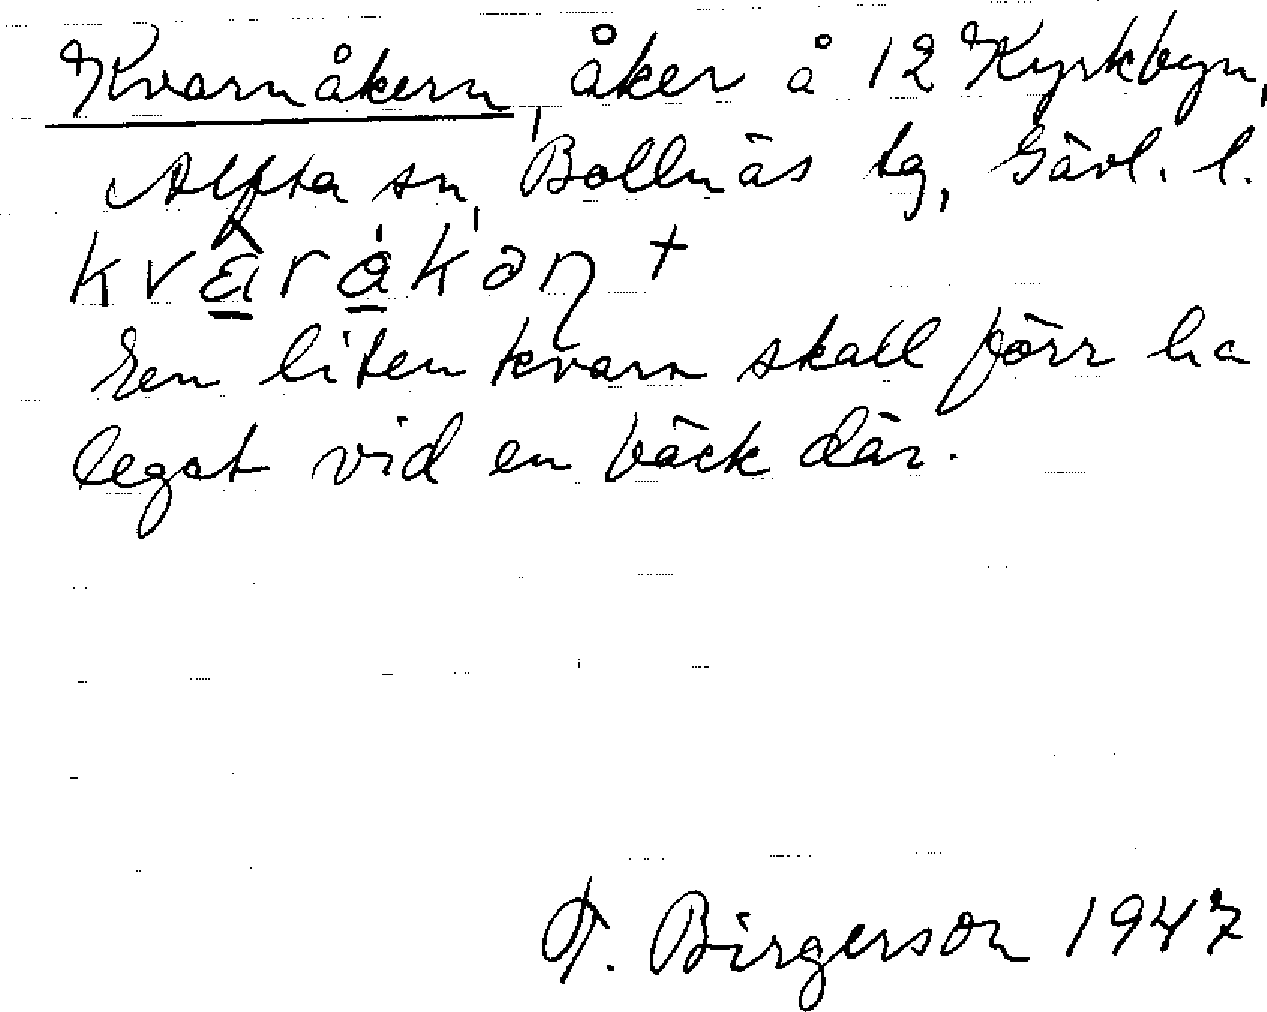 Kvarnåkern, åker å 12 Kyrkbyn,
Alfta sn, Bollnäs tg, Gävl. l.
kvàrákən +
En liten kvarn skall förr ha
legat vid en bäck där.
F. Birgerson 1947